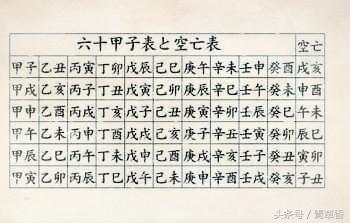 六十甲子表と空亡表 空亡
甲子 乙丑 丙寅 丁卯 戊辰 己巳 庚午 辛未 壬申 癸酉 戌亥
甲戌 乙亥 丙子 丁丑 戊寅 己卯 庚辰 辛巳 壬午 癸未 申酉
甲申 乙酉 丙戌 丁亥 戊子 己丑 庚寅 辛卯 壬辰 癸巳 午未
甲午 乙未 丙申 丁酉 戊戌 己亥 庚子 辛丑 壬寅 癸卯 辰巳
甲辰 乙巳 丙午 丁未 戊申 己酉 庚戌 辛亥 壬子 癸丑 寅卯
甲寅 乙卯 丙辰 丁巳 戊午 己未 庚申 辛酉 壬戌 癸亥 子丑
头条号 /